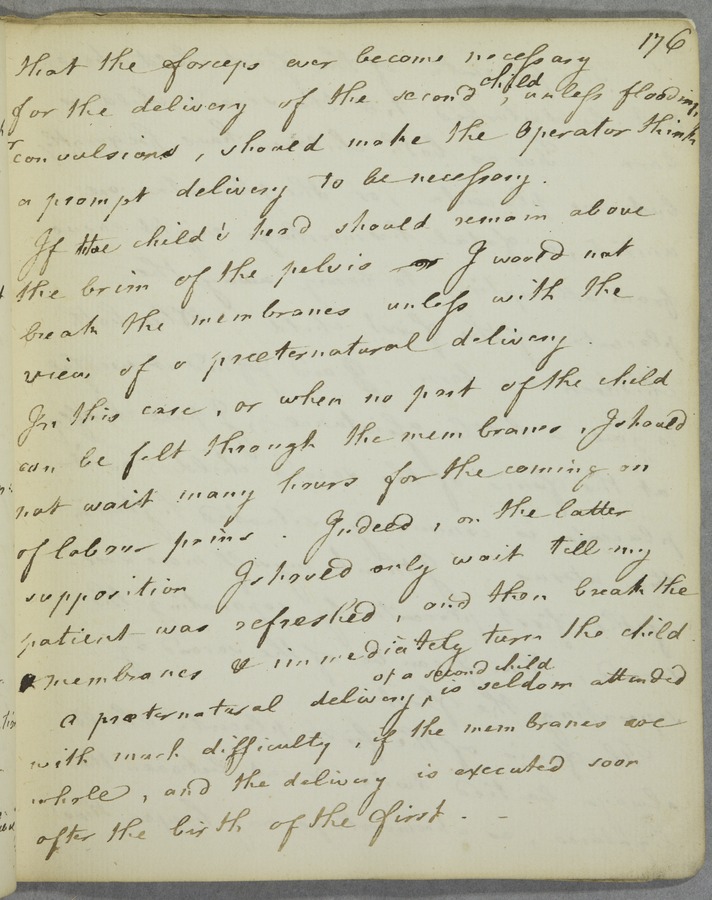 176
that the forceps ever become necessary
for the delivery of the second child, unless flooding,
r convulsions, should make the Operator think
a prompt delivery to be necessary.
If the child's head should remain above
the brim of the pelvis I would not
break the membranes unless with the
view of a præternatural delivery.
In this case, or when no part of the child
can be felt through the membranes, I should
not wait many hours for the coming on
of labour pains. Indeed, on the latter
supposition I should only wait till my
patient was refreshed, and then break the
membranes & immediately turn the child
a præternatural delivery, of a second child is seldom attended
with much difficulty, if the membranes are
whole, and the delivery is executed soon
after the birth of the first. -